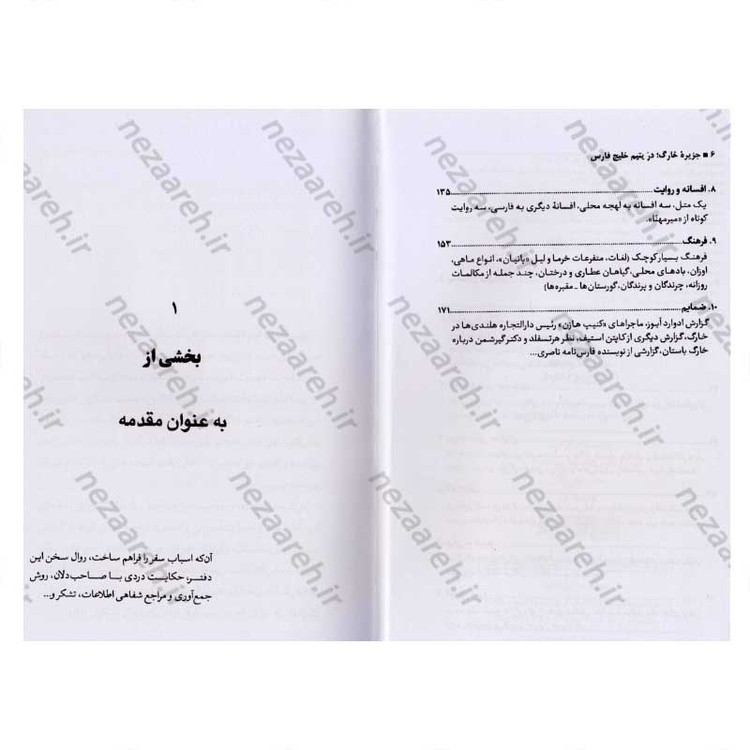 ۶ ■ جزیرهٔ خارگ؛ درّ یتیم خلیج فارس
۸. افسانه و روایت ........ ۱۳۵
یک متل، سه افسانه به لهجه محلی، افسانهٔ دیگری به فارسی، سه روایت
کوتاه از «میرمهنّا».
۹. فرهنگ ........ ۱۵۳
فرهنگ بسیار کوچک (لغات، متفرعات خرما و لیل «پانیان»، انواع ماهی،
اوزان، بادهای محلی، گیاهان عطاری و درختان، چند جمله از مکالمات
روزانه، چرندگان و پرندگان، گورستان‌ها ـ مقبره‌ها)
۱۰. ضمایم ........ ۱۷۱
گزارش ادوارد آیوز، ماجراهای «کنیپ هازن» رئیس دارالتجاره هلندی‌ها در
خارگ، گزارش دیگری از کاپتن استیف، نظر هرتسفلد و دکتر گیرشمن درباره
خارگ باستان، گزارشی از نویسنده فارس‌نامه ناصری...
۱
بخشی از
به عنوان مقدمه
آن‌که اسباب سفر را فراهم ساخت، روال سخن این
دفتر، حکایت دردی با صاحب‌دلان، روش
جمع‌آوری و مراجع شفاهی اطلاعات، تشکر و...
nezaareh.ir
nezaareh.ir
nezaareh.ir
nezaareh.ir
nezaareh.ir
nezaareh.ir
nezaareh.ir
nezaareh.ir
nezaareh.ir